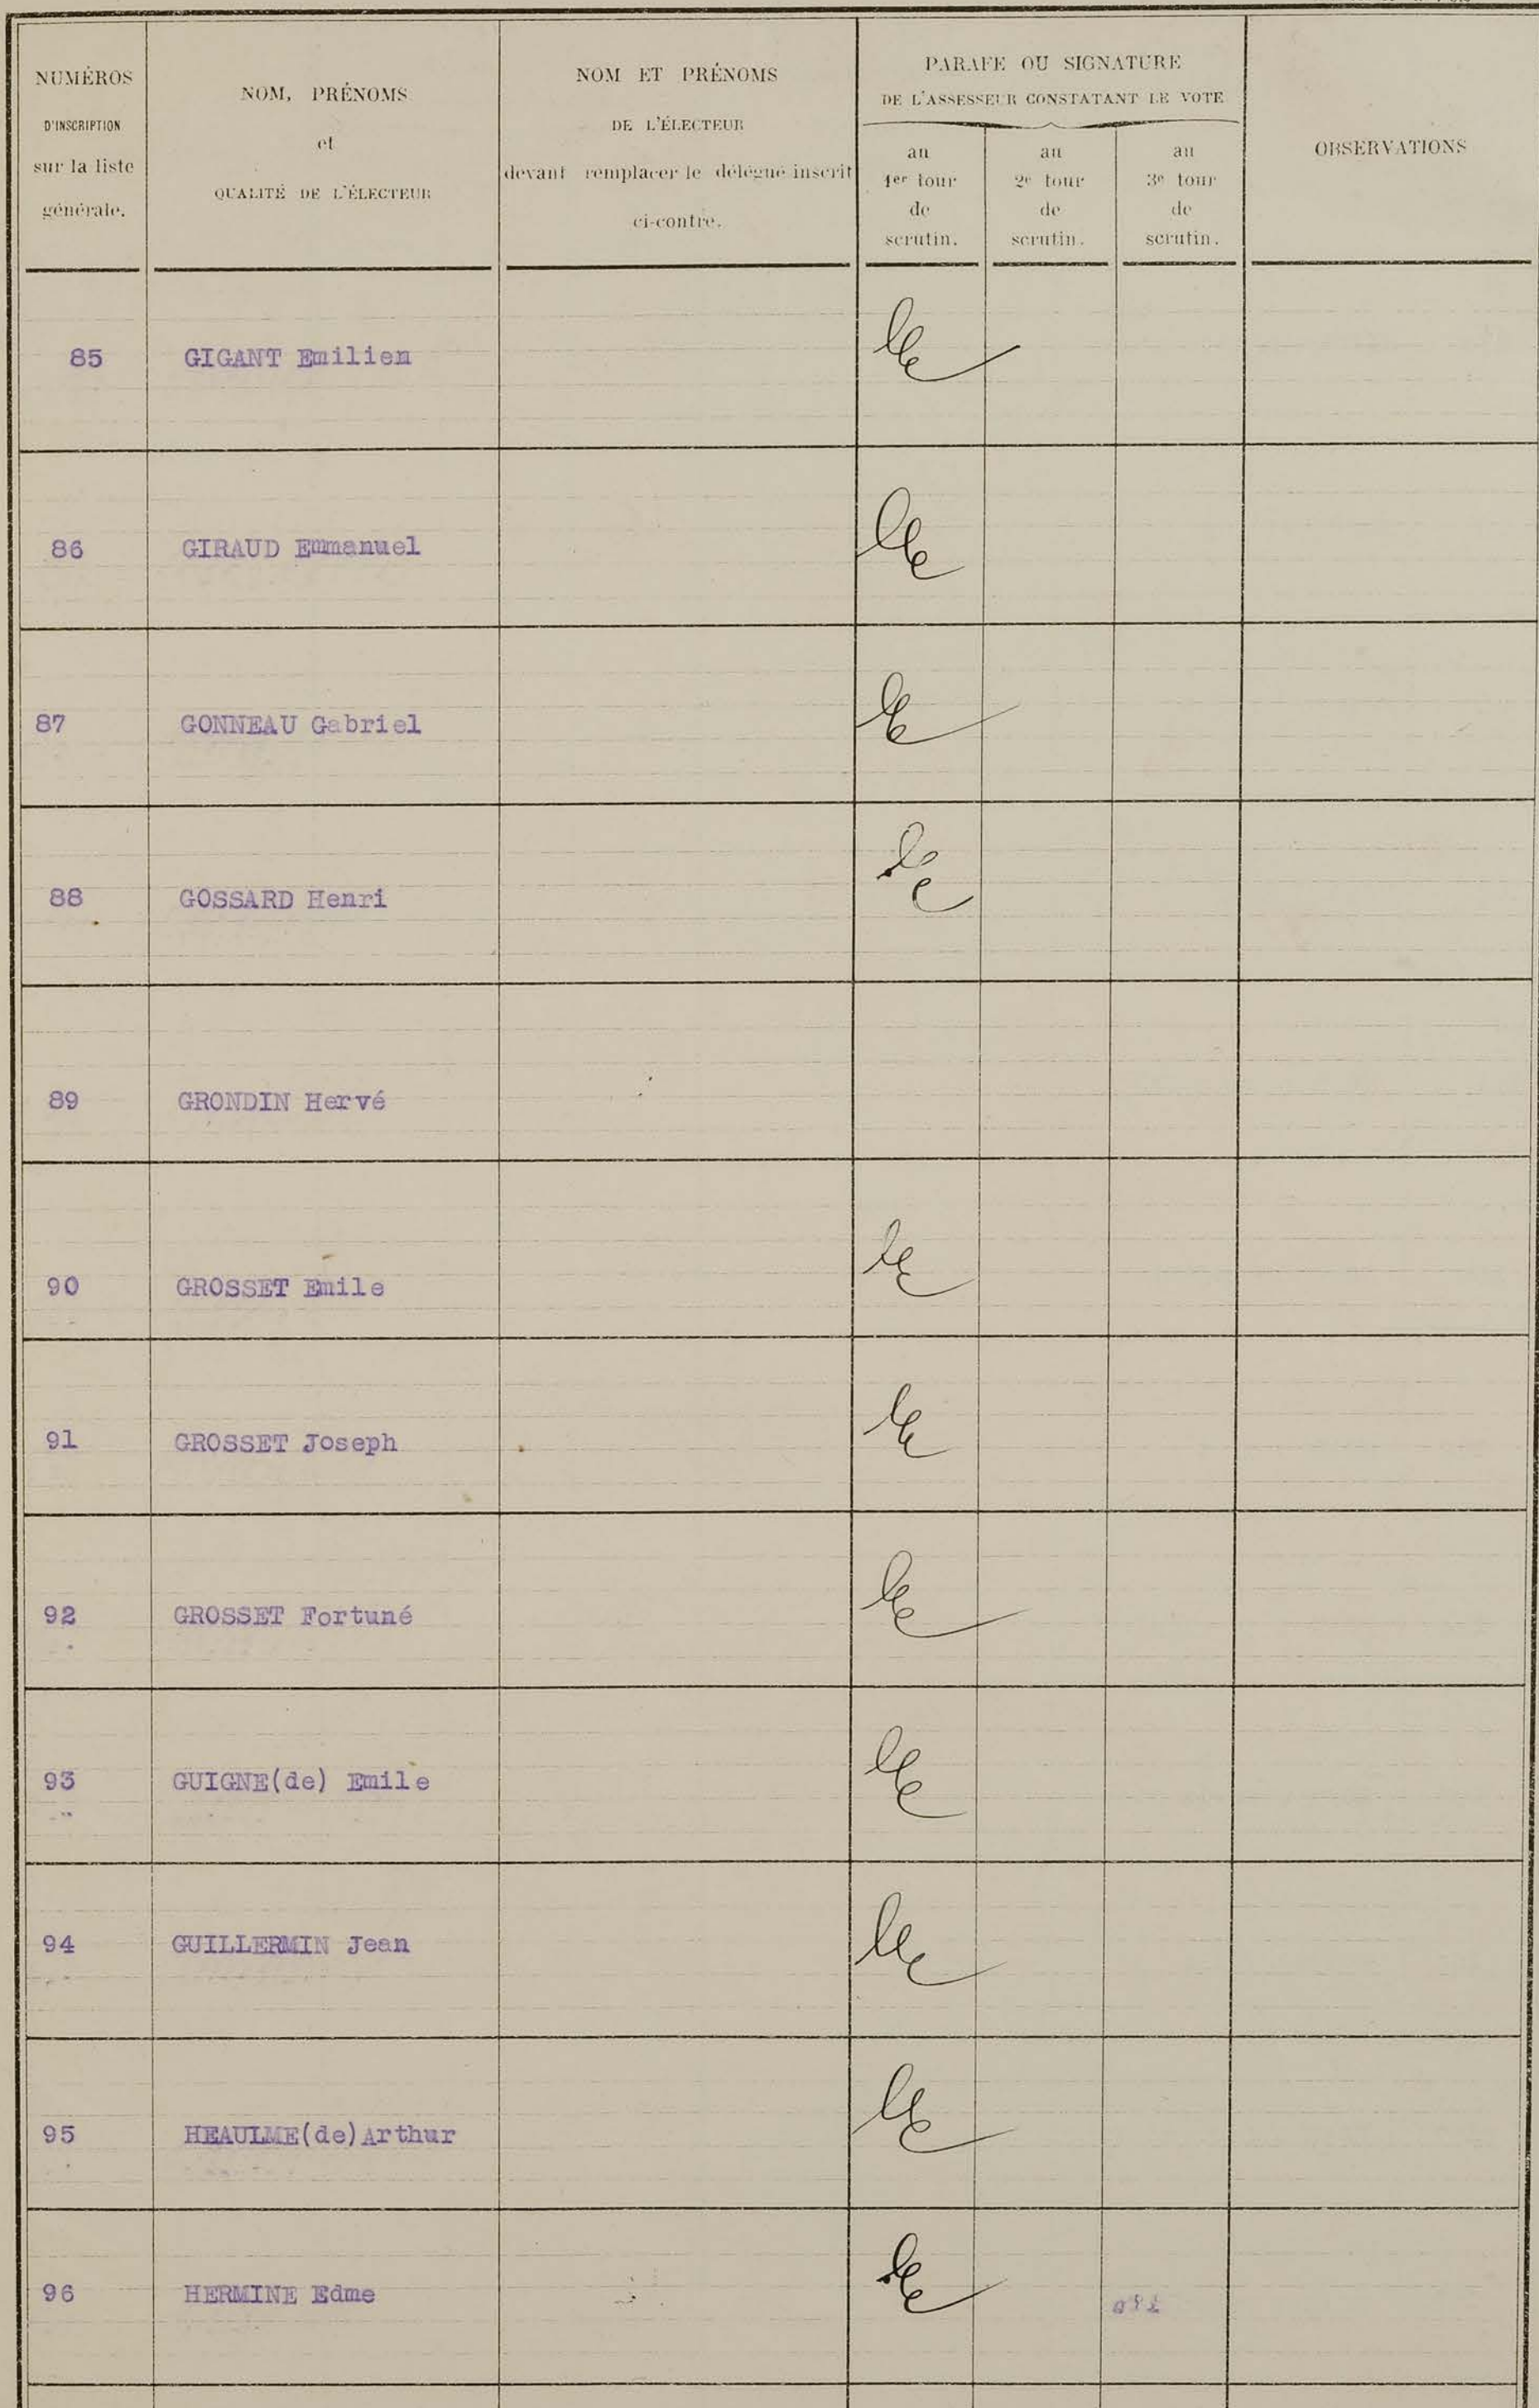 NUMÉROS
D'INSCRIPTION
sur la liste
générale.
NOM, PRÉNOMS
et
QUALITÉ DE L'ÉLECTEUR
NOM ET PRÉNOMS
DE L'ÉLECTEUR
devant remplacer le délégué inscrit
ci-contre.
PARAFE OU SIGNATURE
DE L'ASSESSEUR CONSTATANT LE VOTE
au
1er tour
de
scrutin.
au
2e tour
de
scrutin.
au
3e tour
de
scrutin.
OBSERVATIONS
85 GIGANT Emilien
86 GIRAUD Emmanuel
87 GONNEAU Gabriel
88 GOSSARD Henri
89 GRONDIN Hervé
90 GROSSET Emile
91 GROSSET Joseph
92 GROSSET Fortuné
93 GUIGNE(de) Emile
94 GUILLERMIN Jean
95 HEAULME(de)Arthur
96 HERMINE Edme